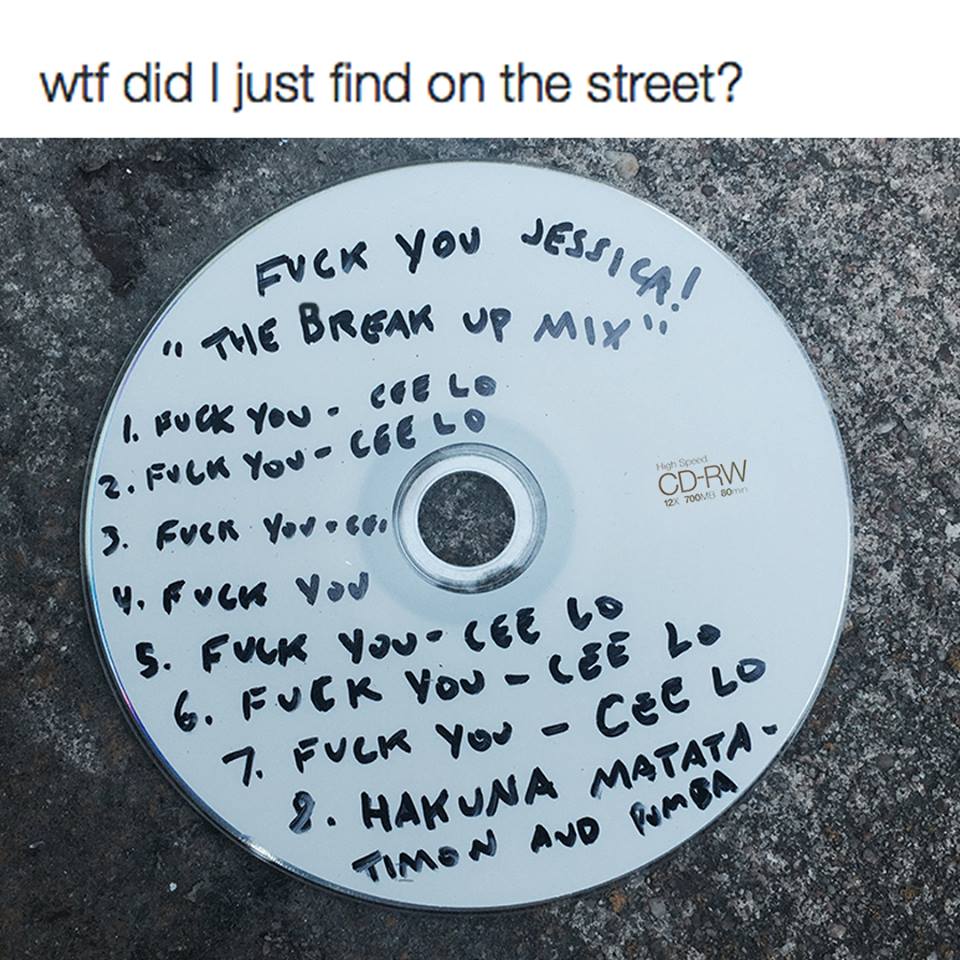 wtf did I just find on the street?
FUCK YOU JESSICA!
"THE BREAK UP MIX"
1. FUCK YOU - CEE LO
2. FUCK YOU - CEE LO
3. FUCK YOU - CE
4. FUCK YOU
5. FUCK YOU - CEE LO
6. FUCK YOU - CEE LO
7. FUCK YOU - CEE LO
8. HAKUNA MATATA -
TIMON AND PUMBA
High Speed
CD-RW
12X 700MB 80min